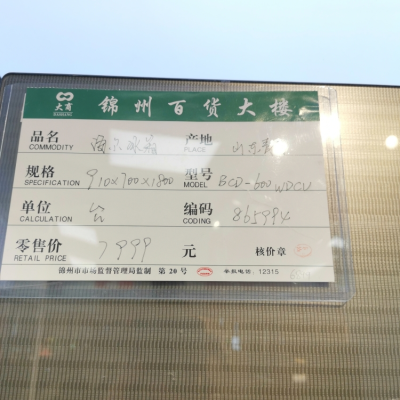 大商 锦州百货大楼
品名 海尔冰箱 产地 山东青岛
COMMODITY PLACE
规格 910×700×1800 型号 BCD-600WDCU
SPECIFICATION MODEL
单位 台 编码 865994
CALCULATION CODING
零售价 7999 元 核价章
RETAIL PRICE
锦州市市场监督管理局监制 第20号 举报电话:12315